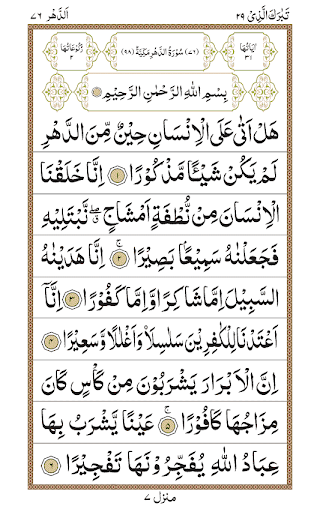 تَبٰرَكَ الَّذِیْ ۲۹
اَلدَّهْر ۷۶
اٰیَاتُهَا ۳۱
(۷۶) سُوْرَةُ الدَّهْرِ مَدَنِیَّةٌ (۹۸)
رُكُوْعَاتُهَا ۲
بِسْمِ اللّٰهِ الرَّحْمٰنِ الرَّحِیْمِ
هَلْ اَتٰی عَلَی الْاِنْسَانِ حِیْنٌ مِّنَ الدَّهْرِ
لَمْ یَكُنْ شَیْـًٔا مَّذْكُوْرًا ۱ اِنَّا خَلَقْنَا
الْاِنْسَانَ مِنْ نُّطْفَةٍ اَمْشَاجٍ ۖۗ نَّبْتَلِیْهِ
فَجَعَلْنٰهُ سَمِیْعًۢا بَصِیْرًا ۲ اِنَّا هَدَیْنٰهُ
السَّبِیْلَ اِمَّا شَاكِرًا وَّاِمَّا كَفُوْرًا ۳ اِنَّاۤ
اَعْتَدْنَا لِلْكٰفِرِیْنَ سَلٰسِلَا۟ وَاَغْلٰلًا وَّسَعِیْرًا ۴
اِنَّ الْاَبْرَارَ یَشْرَبُوْنَ مِنْ كَاْسٍ كَانَ
مِزَاجُهَا كَافُوْرًا ۵ عَیْنًا یَّشْرَبُ بِهَا
عِبَادُ اللّٰهِ یُفَجِّرُوْنَهَا تَفْجِیْرًا ۶
منزل ۷